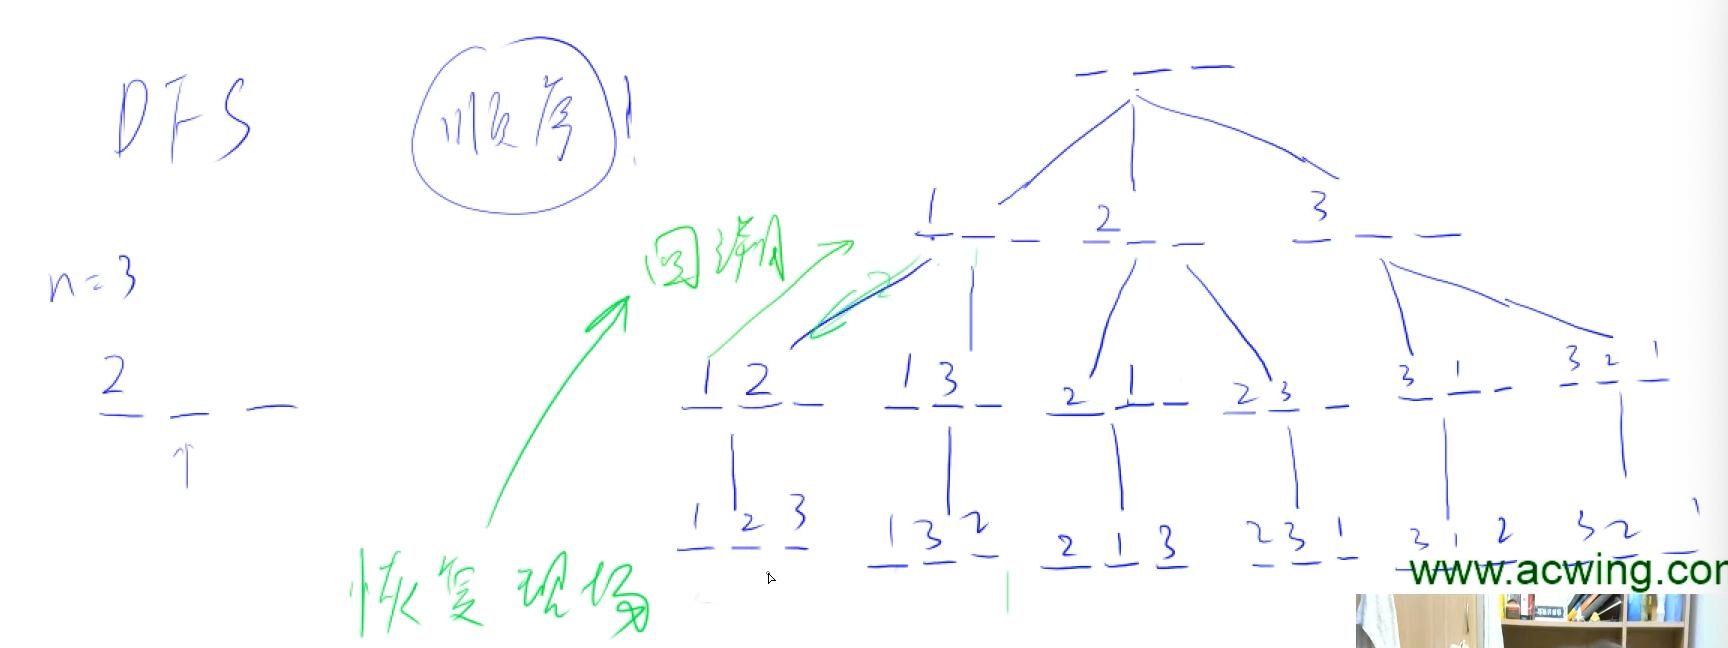 DFS 顺序!
n=3
2
回溯
恢复现场
1 2 3
2
1 2 1 3 2 1 2 3 3 1 3 2 1
1 2 3 1 3 2 2 1 3 2 3 1 3 1 2 3 2 1
www.acwing.com